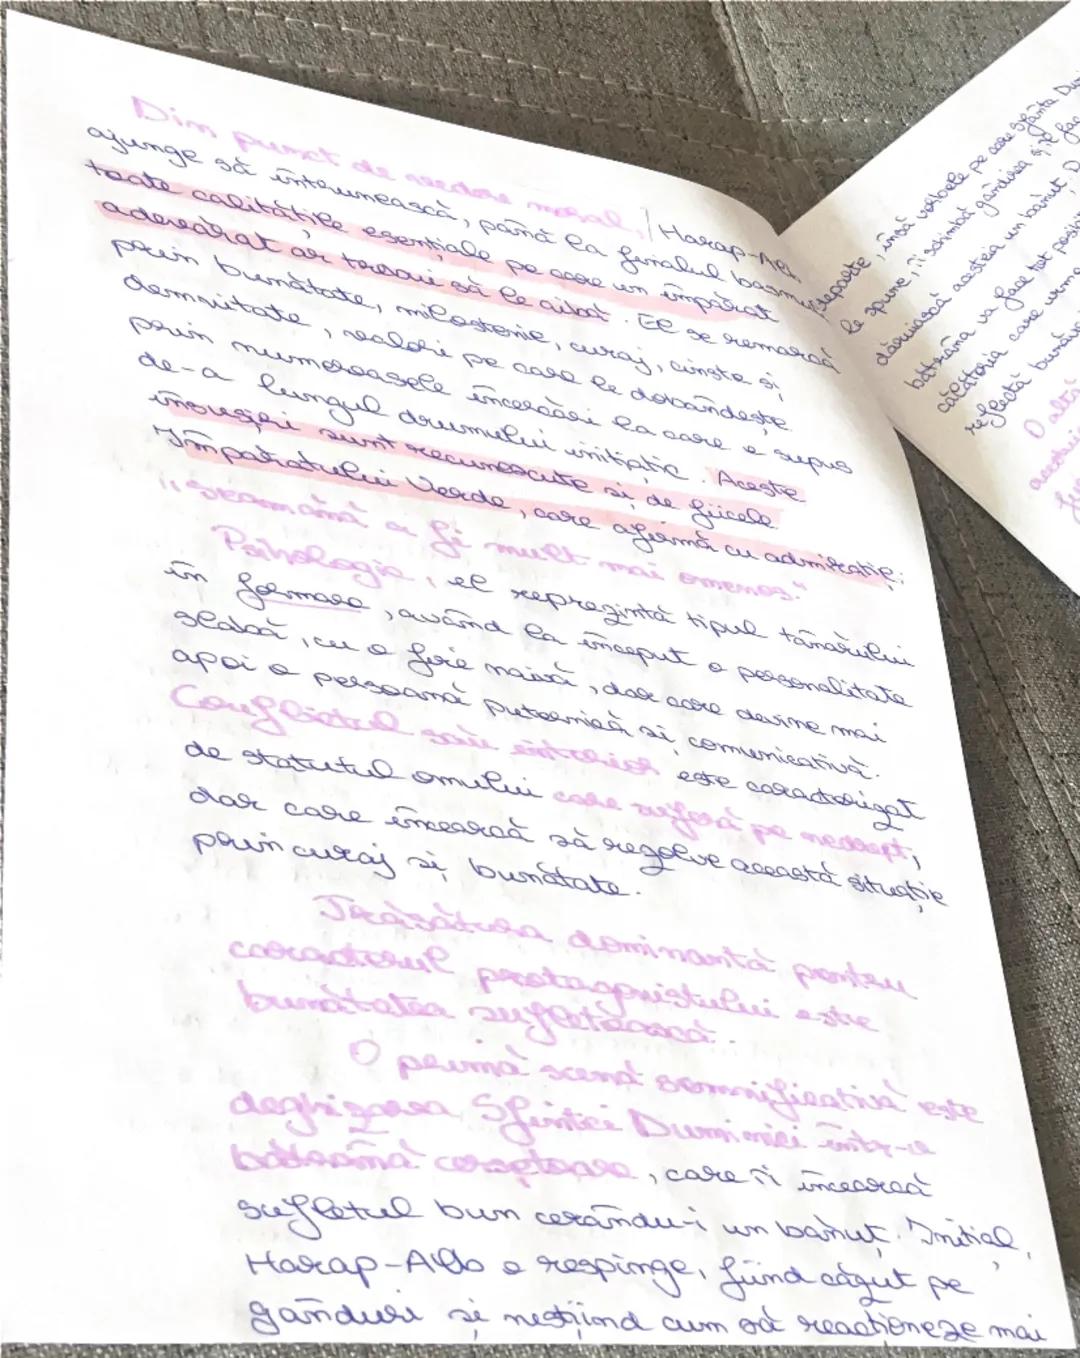 Din punct de vedere moral, / Harap-Alb
ajunge să întrunească, până la finalul basmului,
toate calitățile esențiale pe care un împărat
adevărat ar trebui să le aibă. El se remarcă
prin bunătate, milostenie, curaj, cinste și
demnitate, valori pe care le dobândește
prin numeroasele încercări la care e supus
de-a lungul drumului inițiatic. Aceste
însușiri sunt recunoscute și de fiicele
Împăratului Verde, care afirmă cu admirație:
„seamănă a fi mult mai omenos."
Psihologic, el reprezintă tipul tânărului
în formare, având la început o personalitate
slabă, cu o fire naivă, dar care devine mai
apoi o persoană puternică și comunicativă.
Conflictul său interior este caracterizat
de statutul omului care suferă pe nedrept,
dar care încearcă să rezolve această situație
prin curaj și bunătate.
Trăsătura dominantă pentru
caracterul protagonistului este
bunătatea sufletească.
O primă scenă semnificativă este
deghizarea Sfintei Duminici într-o
bătrână cerșetoare, care îi încearcă
sufletul bun cerându-i un bănuț. Inițial,
Harap-Alb o respinge, fiind căzut pe
gânduri și neștiind cum să reacționeze mai
departe, însă vorbele pe care Sfânta Du
le spune, îi schimbă gândirea și îl fac
dăruiască acesteia un bănuț.
bătrâna va face tot posi
călătoria care urm
reflectă bunăt
O altă